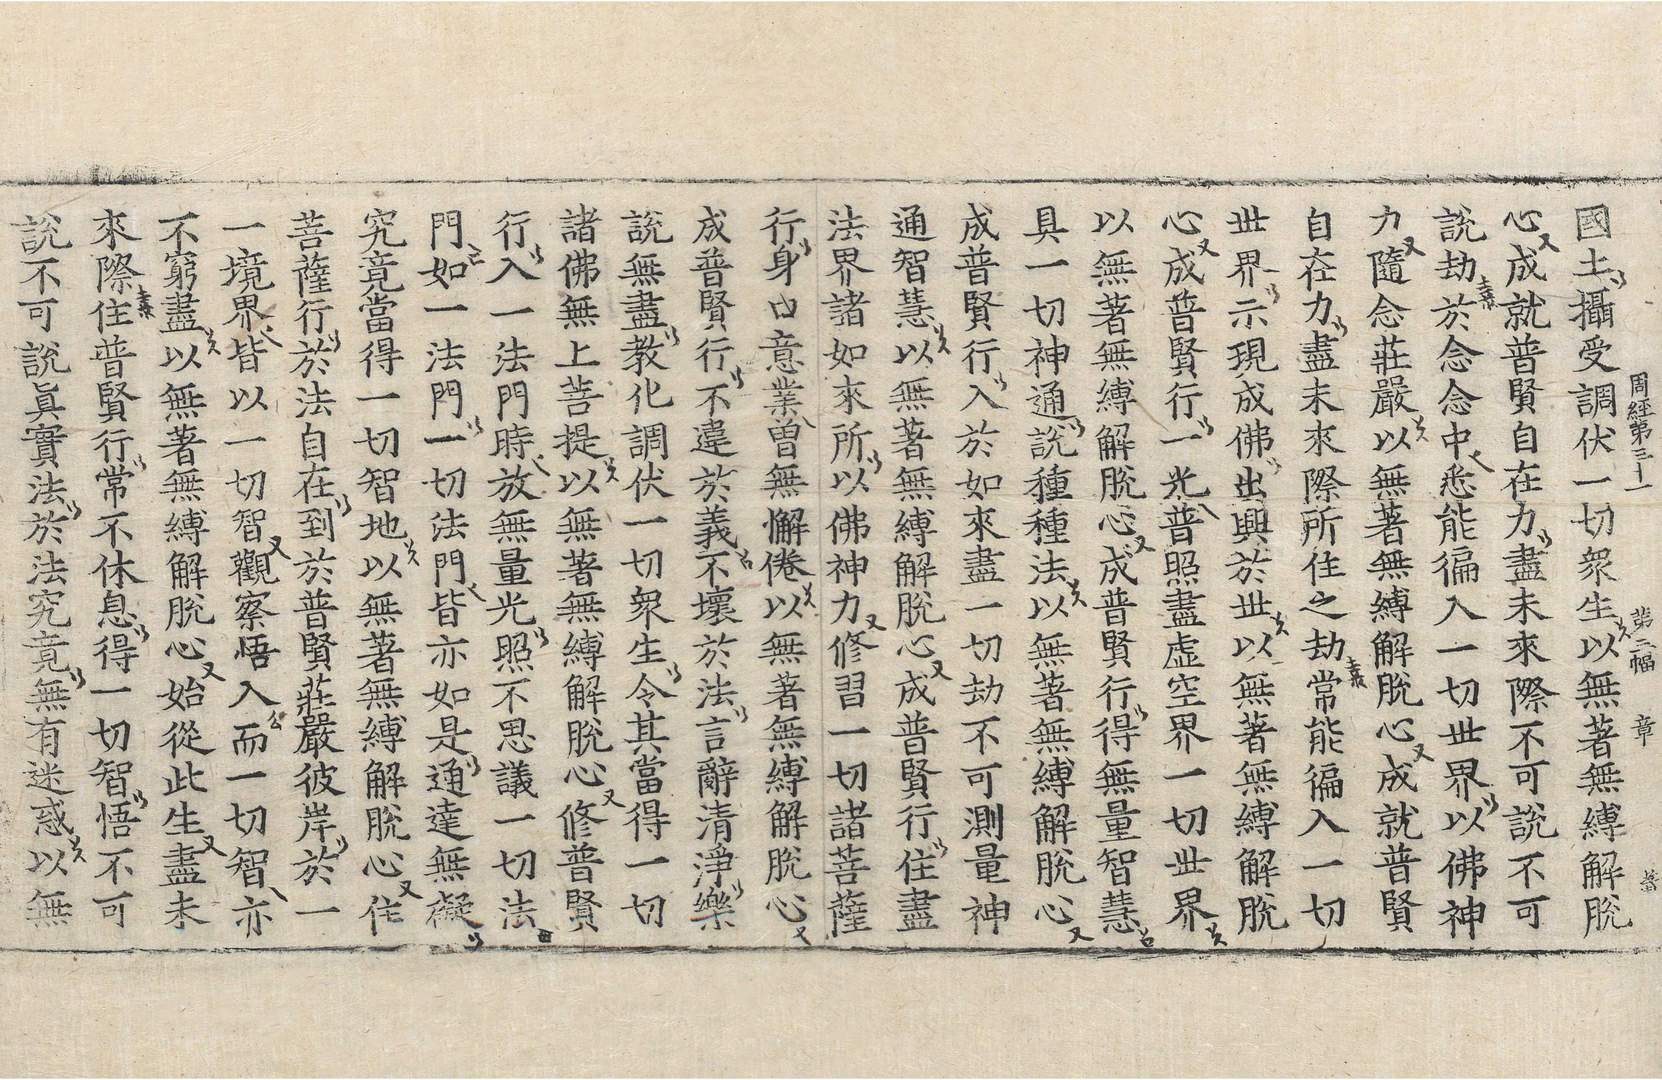 周經第三十一 第二幅 章
國土攝受調伏一切衆生以無著無縛解脫
心成就普賢自在力盡未來際不可說不可
說劫於念念中悉能徧入一切世界以佛神
力隨念莊嚴以無著無縛解脫心成就普賢
自在力盡未來際所住之劫常能徧入一切
世界示現成佛出興於世以無著無縛解脫
心成普賢行一光普照盡虛空界一切世界
以無著無縛解脫心成普賢行得無量智慧
具一切神通說種種法以無著無縛解脫心
成普賢行入於如來盡一切劫不可測量神
通智慧以無著無縛解脫心成普賢行住盡
法界諸如來所以佛神力修習一切諸菩薩
行身口意業曾無懈倦以無著無縛解脫心
成普賢行不違於義不壞於法言辭清淨樂
說無盡教化調伏一切衆生令其當得一切
諸佛無上菩提以無著無縛解脫心修普賢
行入一法門時放無量光照不思議一切法
門如一法門一切法門皆亦如是通達無礙
究竟當得一切智地以無著無縛解脫心住
菩薩行於法自在到於普賢莊嚴彼岸於一
一境界皆以一切智觀察悟入而一切智亦
不窮盡以無著無縛解脫心始從此生盡未
來際住普賢行常不休息得一切智悟不可
說不可說眞實法於法究竟無有迷惑以無